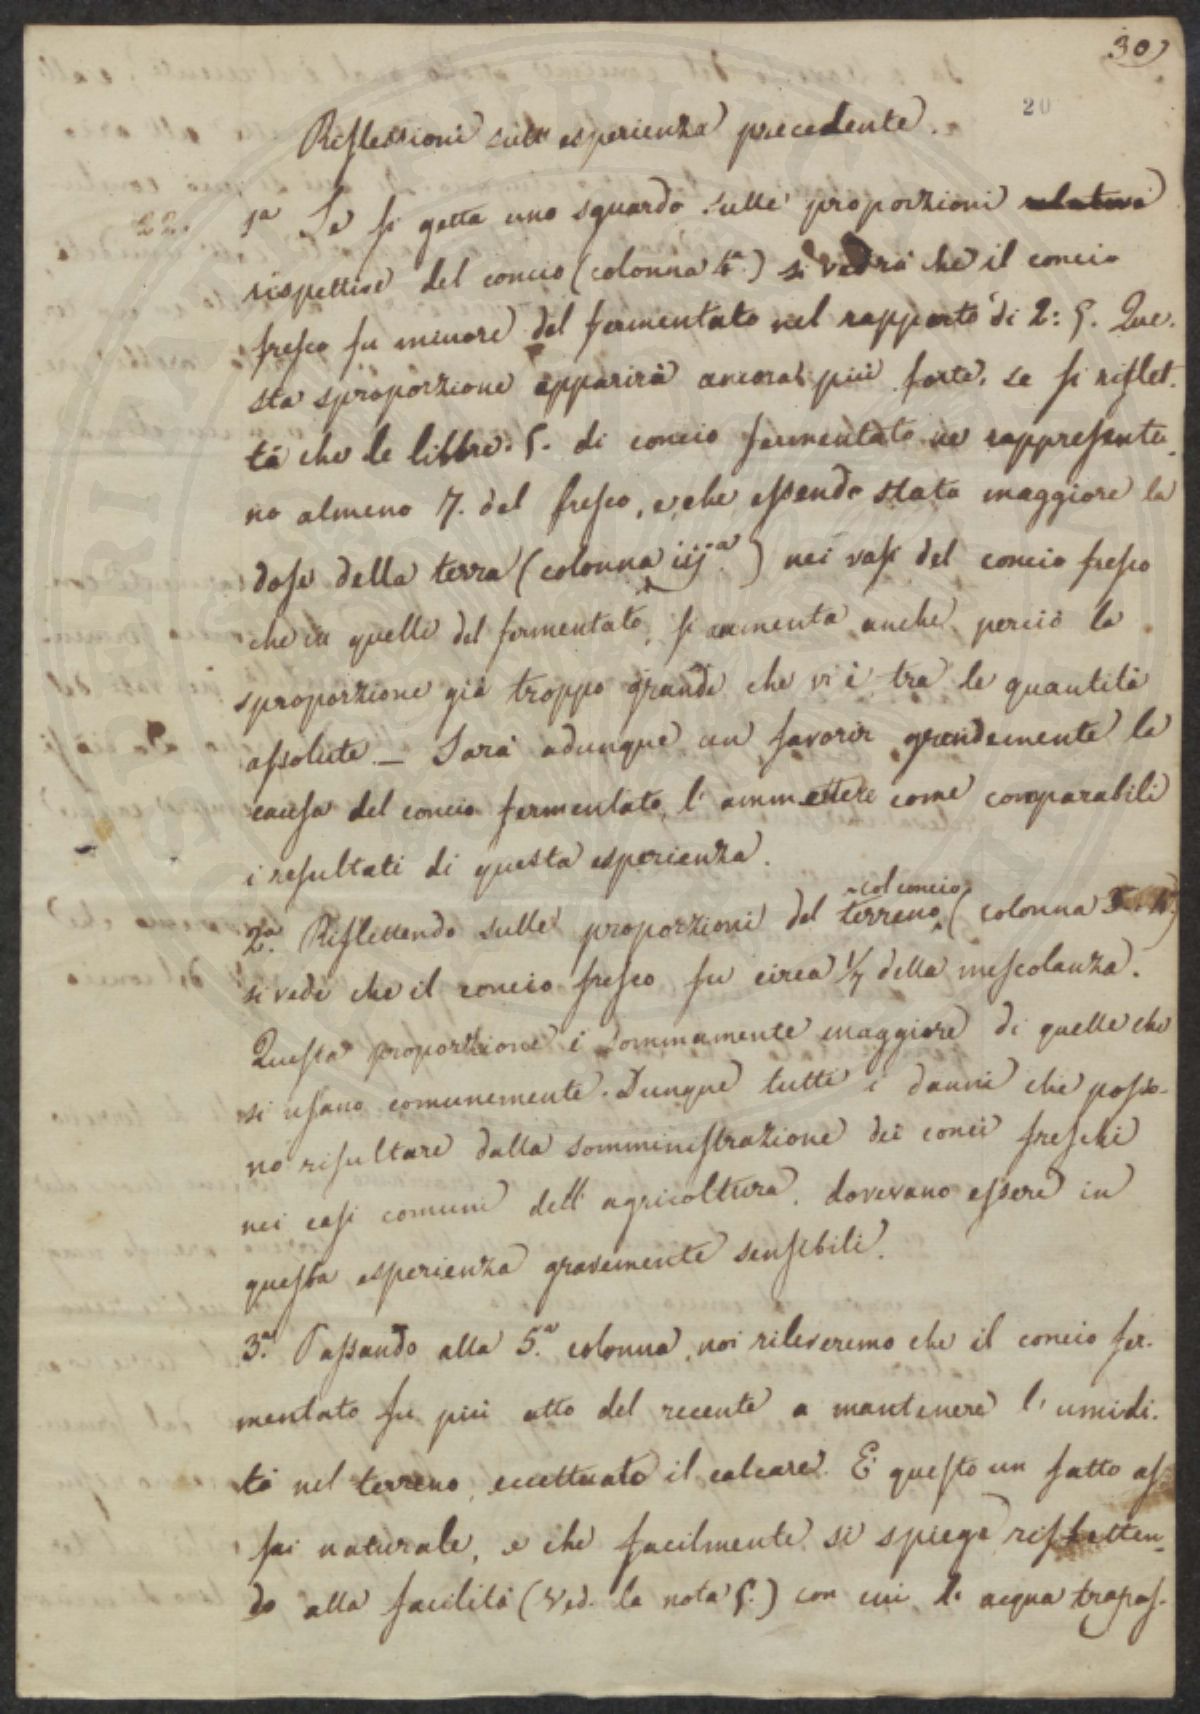 30)
20
Riflessioni sull'esperienza precedente.
22.
1a Se si getta uno sguardo sulle proporzioni relative
rispettive del concio (colonna 4a.) si vedrà che il concio
fresco fu minore del fermentato nel rapporto di 2: 5. Que-
sta sproporzione apparirà ancora più forte, se si riflet-
tà che le libbre 5. di concio fermentato ne rappresenta-
no almeno 7. del fresco, e che essendo stata maggiore la
dose della terra (colonna iija.) nei vasi del concio fresco
che in quelli del fermentato, si aumenta anche perciò la
sproporzione già troppo grande che vi è tra le quantità
assolute — Sarà adunque un favorir grandemente la
causa del concio fermentato, l'ammettere come comparabili
i resultati di questa esperienza.
2a. Riflettendo sulle proporzioni del terreno col concio (colonna 3. 4.)
si vede che il concio fresco fu circa 1/7 della mescolanza.
Questa proporzione è sommamente maggiore di quelle che
si usano comunemente. Dunque tutti i danni che posso-
no risultare dalla somministrazione dei conci freschi
nei casi comuni dell'agricoltura, dovevano essere in
questa esperienza gravemente sensibili.
3.a Passando alla 5.a colonna, noi rileveremo che il concio fer-
mentato fu più atto del recente a mantenere l'umidi-
tà nel terreno, eccettuato il calcare. E' questo un fatto as-
sai naturale, e che facilmente si spiega rifletten-
do alla facilità (Ved. la nota 5.) con cui l'acqua trapas-